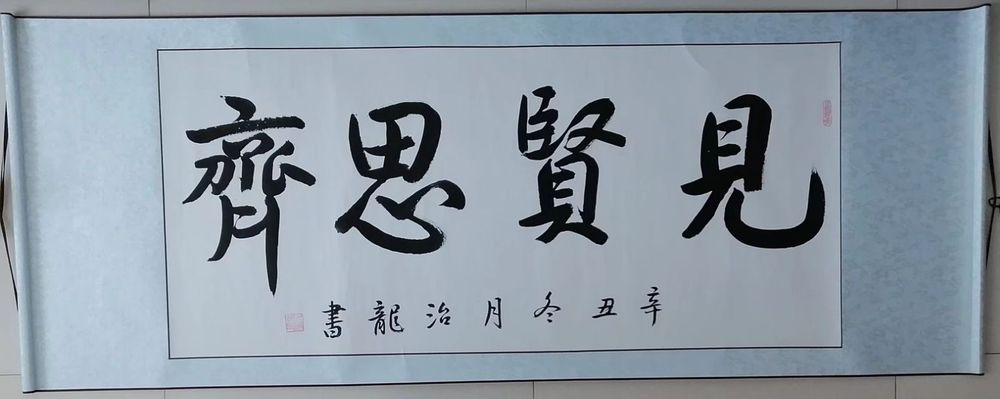 見賢思齊
辛丑冬月治龍書